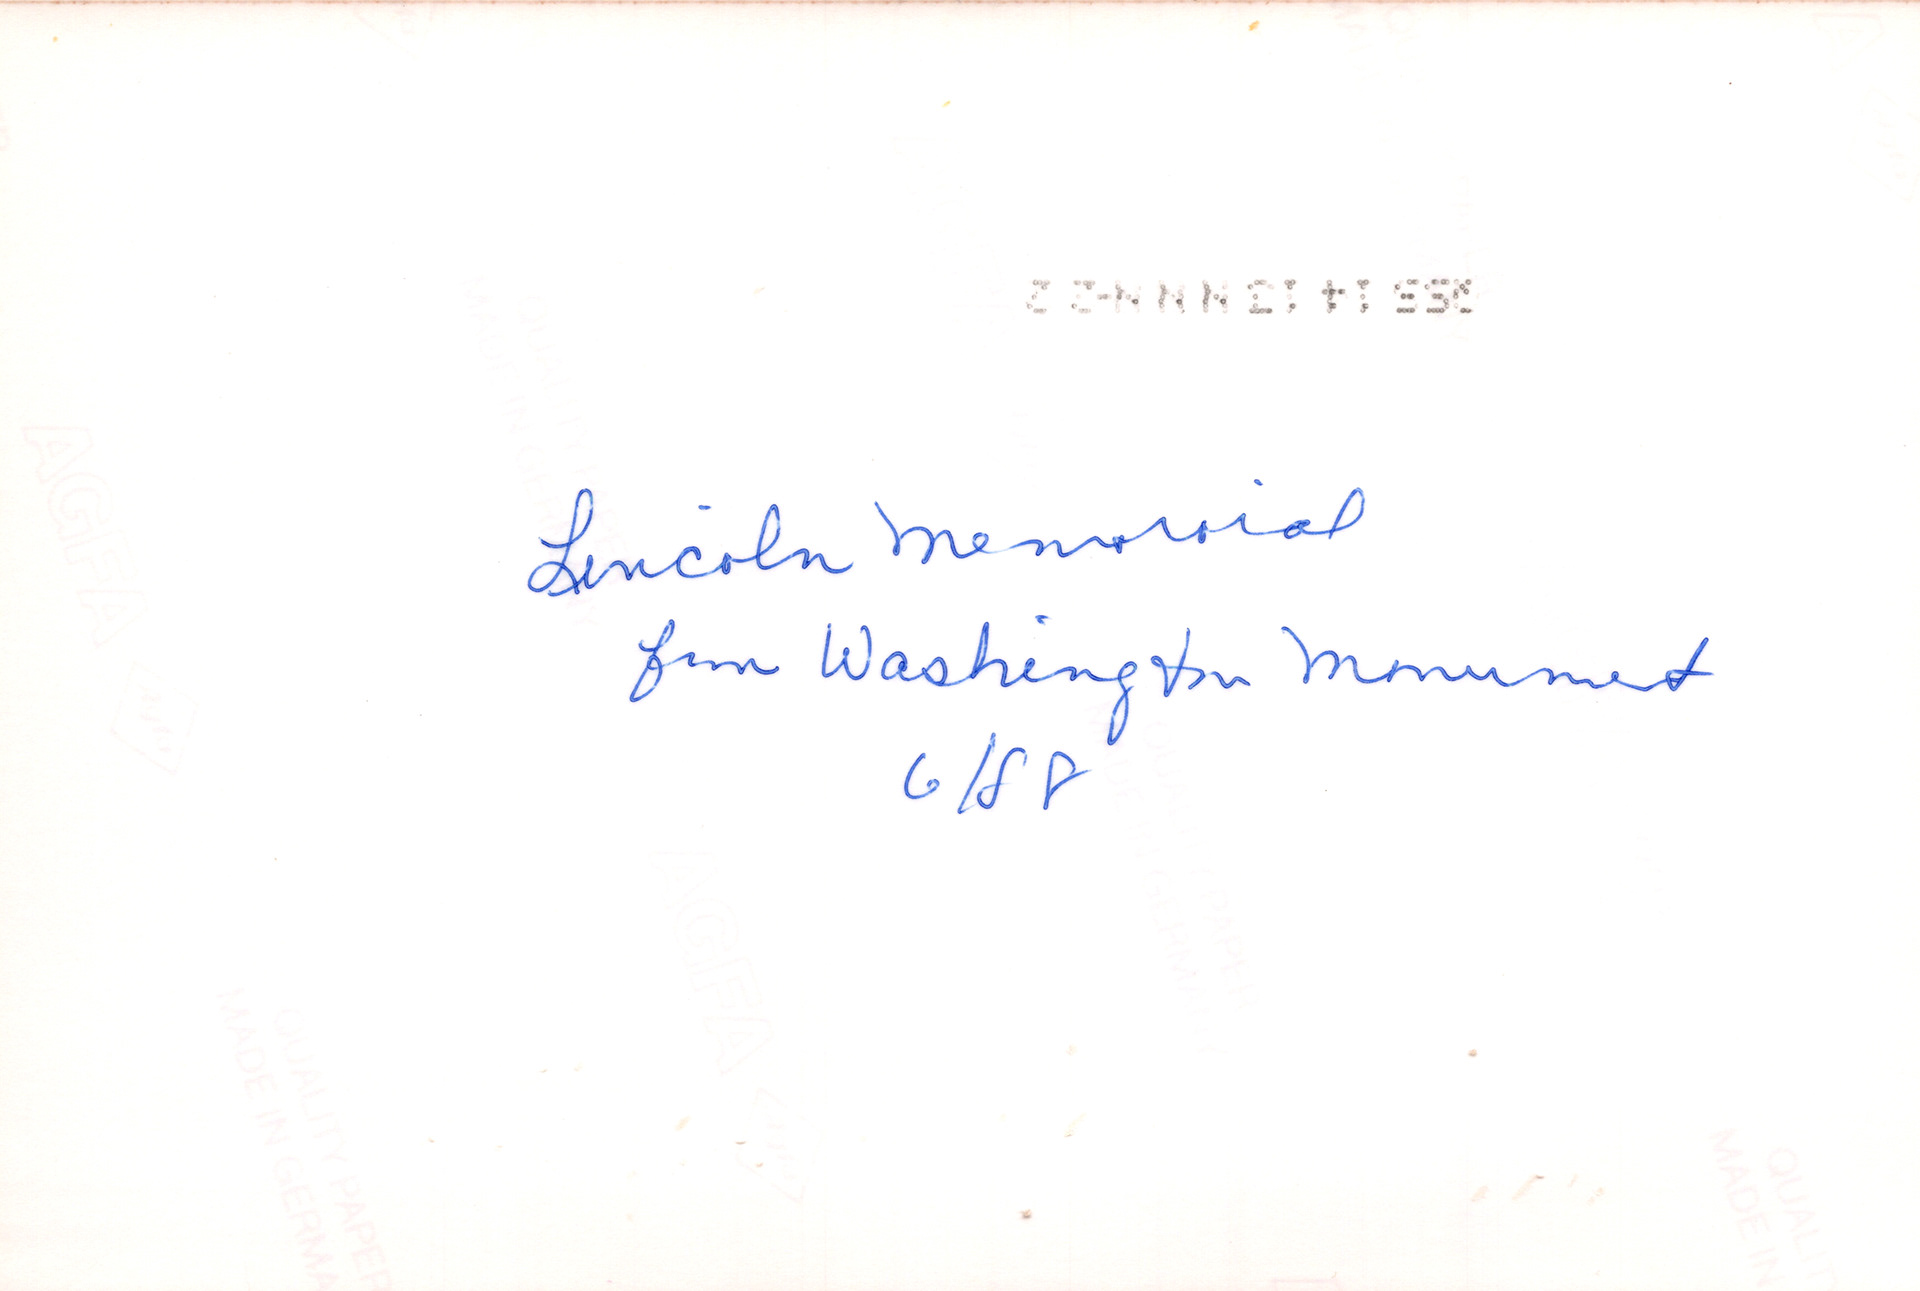 Lincoln Memorial
from Washington Monument
6/88
AGFA
QUALITY PAPER
MADE IN GERMA
AGFA
QUALI
MADE IN